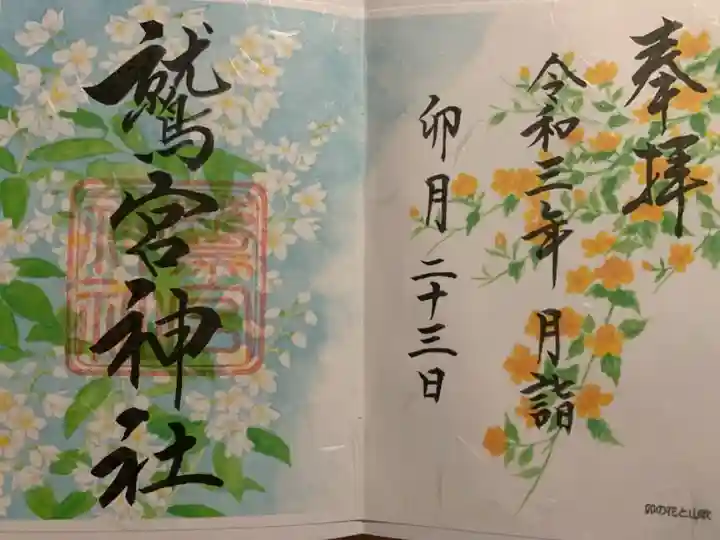 奉拝
令和三年 月詣
卯月 二十三日
鷲宮神社
卯の花と山吹